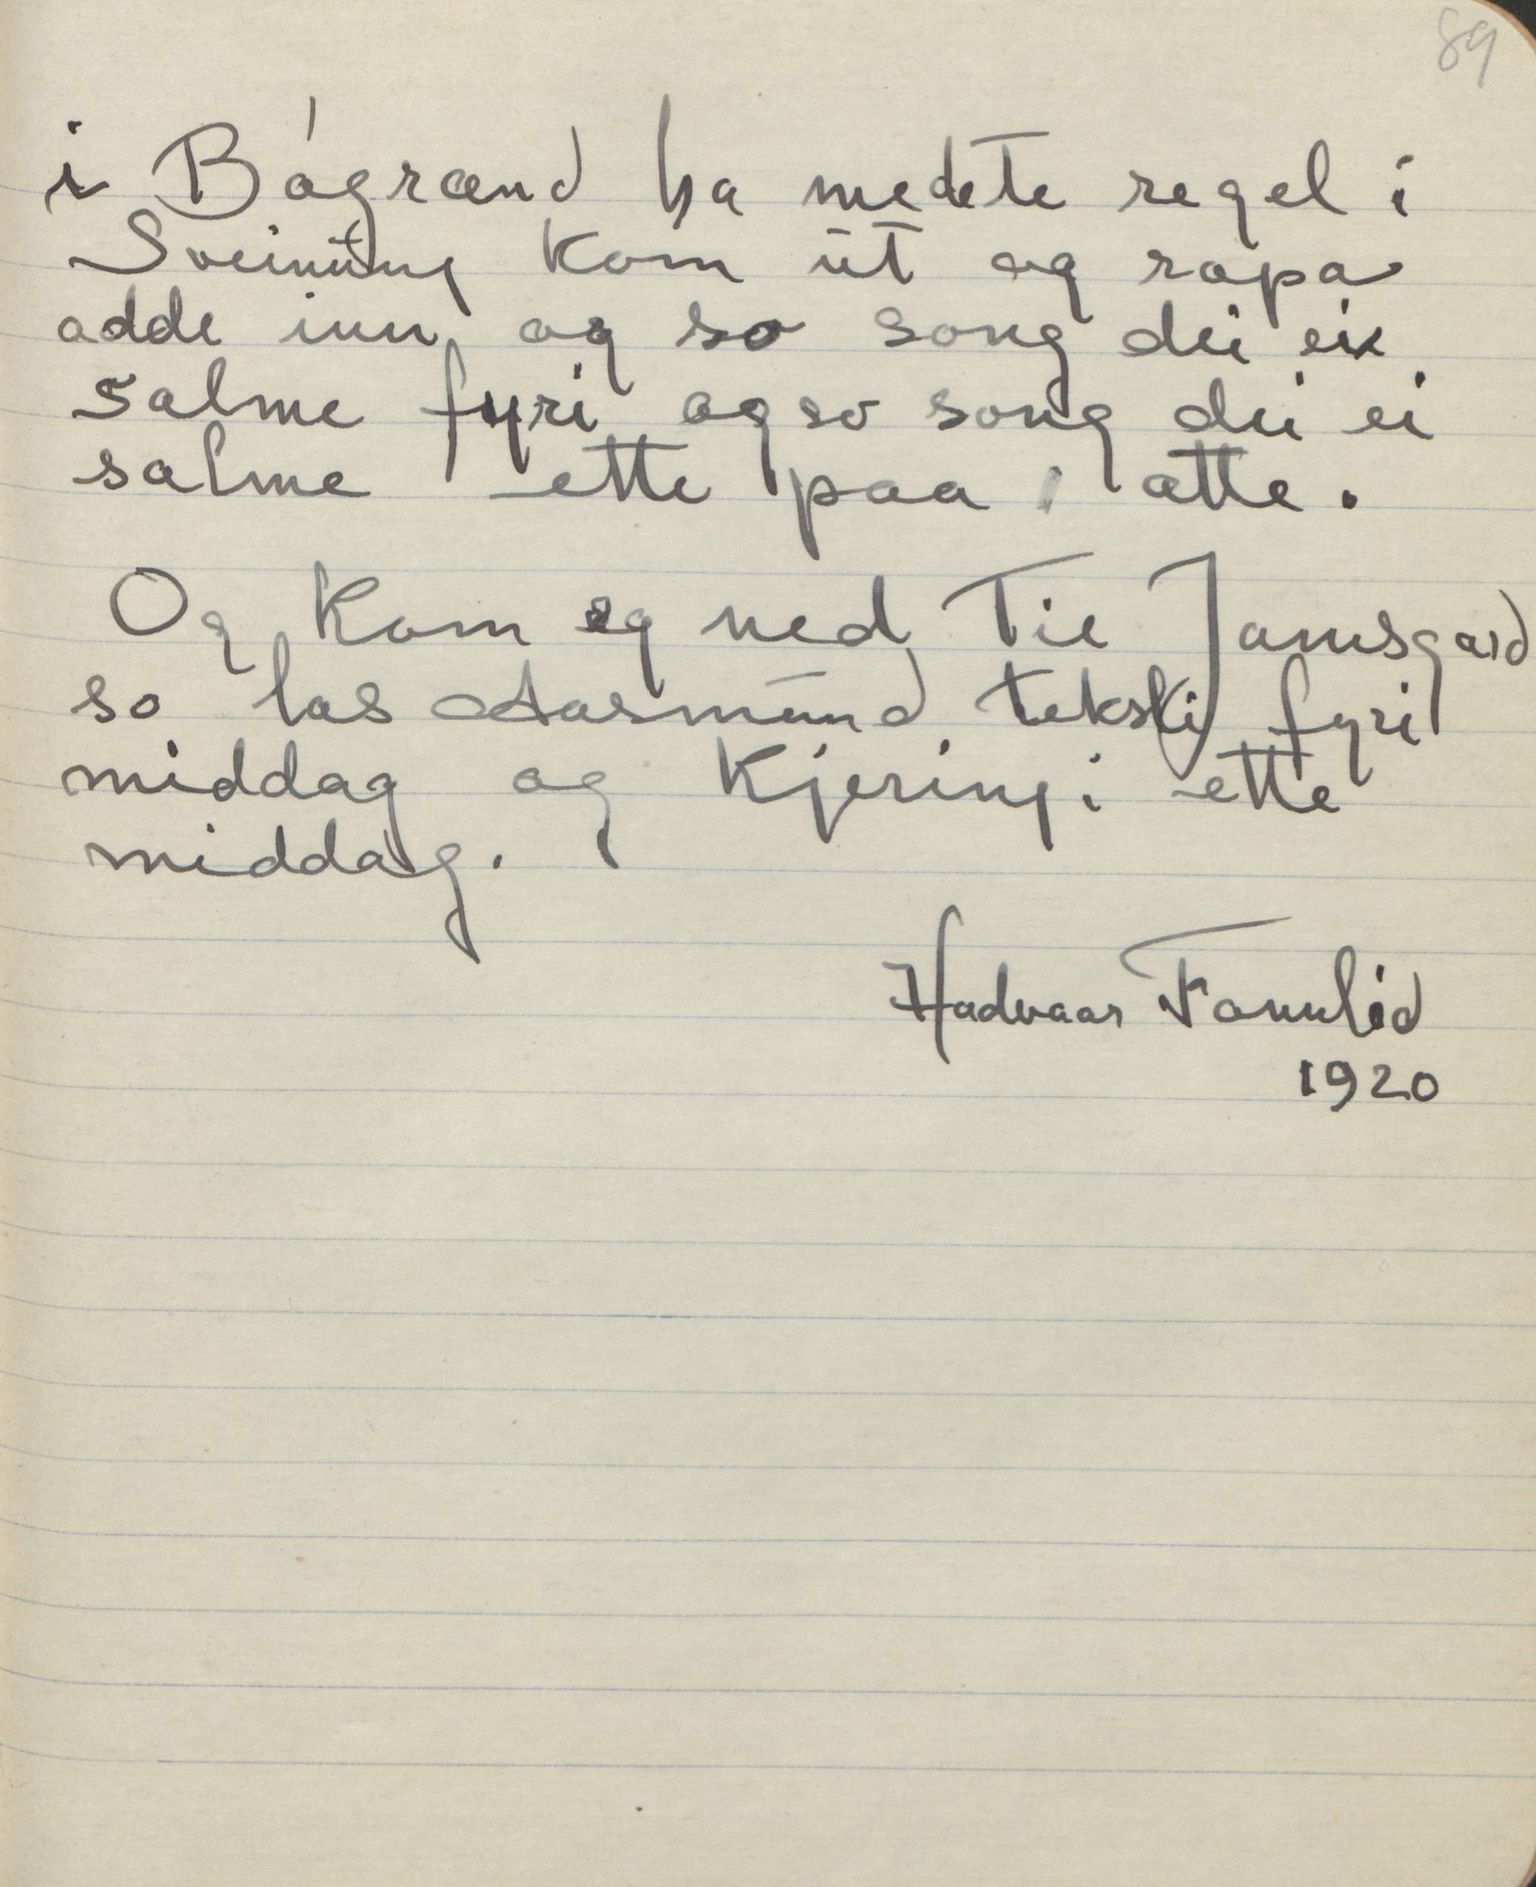 89
i Bágrænd ha medete regel i
Sveinung kom ut og ropa
adde inn og so song dei ei
salme fyri og so song dei ei
salme ette paa atte.
Og kom eg ned Tie Jamsgard
so las Aasmund teksti fyri
middag og Kjeringi ette
middag.
Hadvaar Tannlid
1920